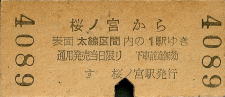 4089
桜ノ宮から
表面太線区間内の1駅ゆき
通用発売当日限り 下車前途無効
す 桜ノ宮駅発行
4089